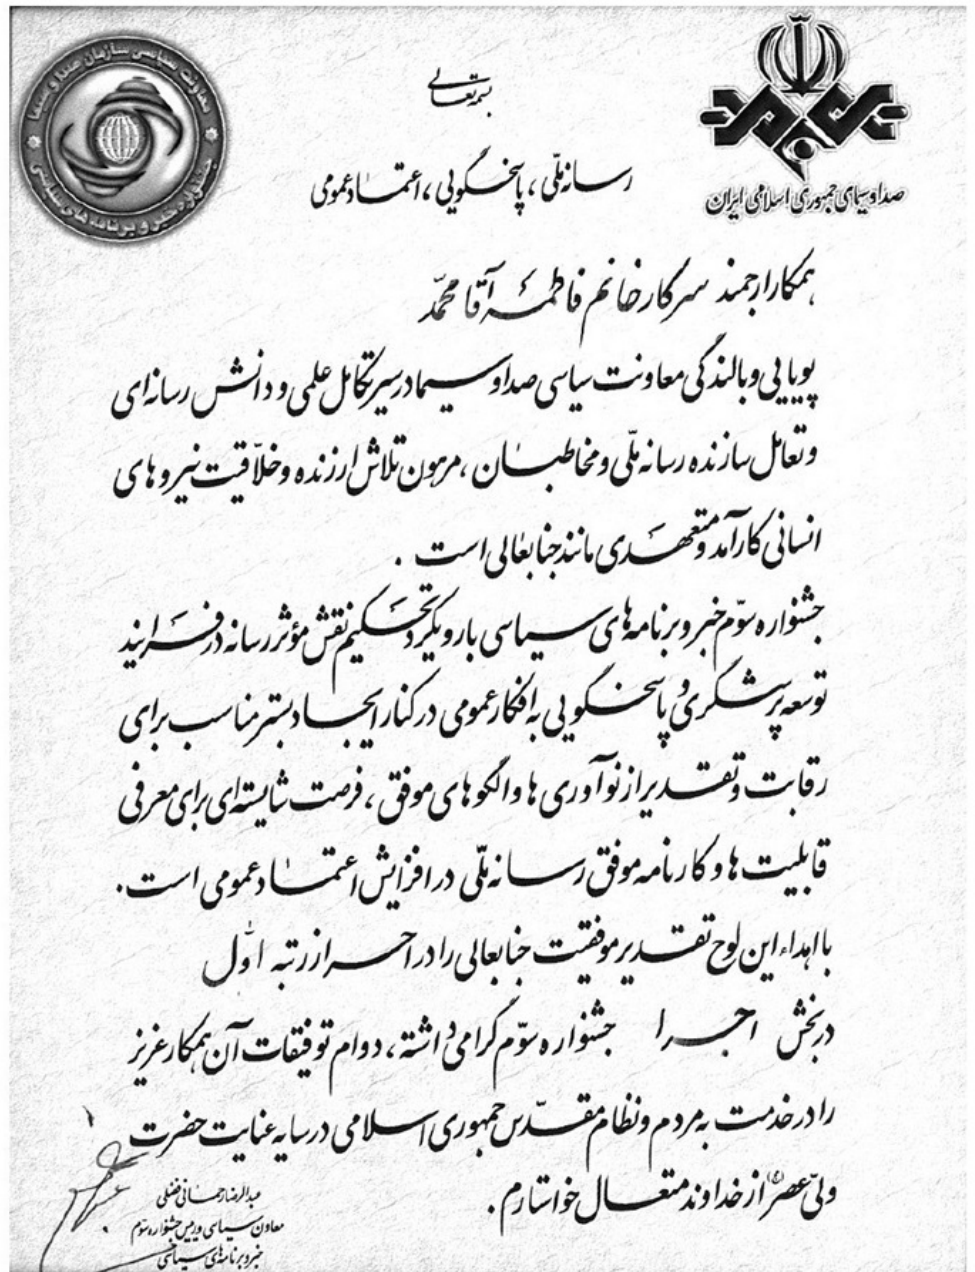 معاونت سیاسی سازمان صدا و سیما
جشنواره خبر و برنامه های سیاسی
صدا و سیمای جمهوری اسلامی ایران
بسمه تعالی
رسانه ملّی ، پاسخگویی ، اعتماد عمومی
همکار ارجمند سرکار خانم فاطمه آقا محمّد
پویایی و بالندگی معاونت سیاسی صدا و سیما در سیر تکامل علمی و دانش رسانه ای
و تعامل سازنده رسانه ملّی و مخاطبان ، مرهون تلاش ارزنده و خلاّقیت نیروهای
انسانی کارآمد و متعهدی مانند جنابعالی است .
جشنواره سوّم خبر و برنامه های سیاسی با رویکرد تحکیم نقش مؤثر رسانه در فرایند
توسعه پرسشگری و پاسخگویی به افکار عمومی در کنار ایجاد بستر مناسب برای
رقابت و تقدیر از نوآوری ها و الگوهای موفق ، فرصت شایسته ای برای معرفی
قابلیت ها و کارنامه موفق رسانه ملّی در افزایش اعتماد عمومی است .
با اهداء این لوح تقدیر موفقیت جنابعالی را در احراز رتبه اوّل
در بخش اجرا جشنواره سوّم گرامی داشته ، دوام توفیقات آن همکار عزیز
را در خدمت به مردم و نظام مقدّس جمهوری اسلامی در سایه عنایت حضرت
ولیّ عصر (عج) از خداوند متعال خواستارم .
عبدالرضا رحمانی فضلی
معاون سیاسی و رییس جشنواره سوّم
خبر و برنامه های سیاسی